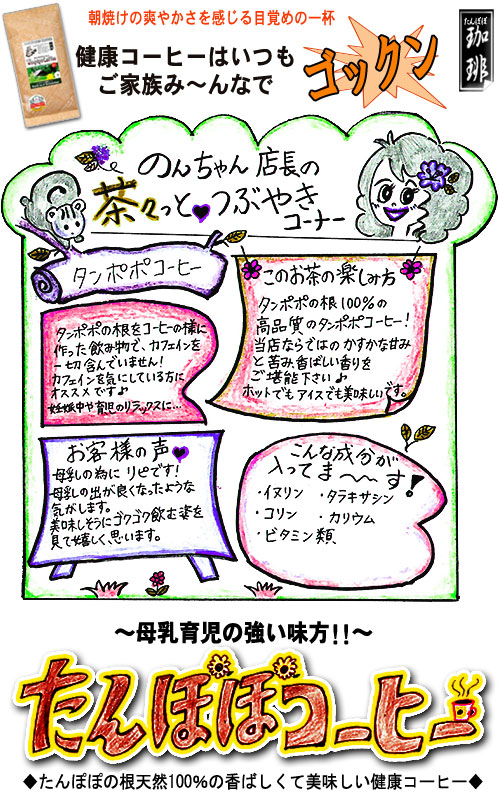 朝焼けの爽やかさを感じる目覚めの一杯
健康コーヒーはいつも
ご家族み〜んなで
ゴックン
たんぽぽ
珈琲
のんちゃん店長の
茶々っと♥つぶやき
コーナー
タンポポコーヒー
タンポポの根をコーヒーの様に
作った飲み物で、カフェインを
一切含んでいません!
カフェインを気にしている方に
オススメです♪
妊娠中や育児のリラックスに…
このお茶の楽しみ方
タンポポの根100%の
高品質のタンポポコーヒー!
当店ならではのかすかな甘み
と苦み、香ばしい香りを
ご堪能下さい♪
ホットでもアイスでも美味しいです。
お客様の声♥
母乳の為にリピです!
母乳の出が良くなったような
気がします。
美味しそうにゴクゴク飲む姿を
見て嬉しく思います。
こんな成分が
入ってま〜〜す!
・イヌリン ・タラキサシン
・コリン ・カリウム
・ビタミン類
〜母乳育児の強い味方!!〜
たんぽぽコーヒー
◆たんぽぽの根天然100%の香ばしくて美味しい健康コーヒー◆